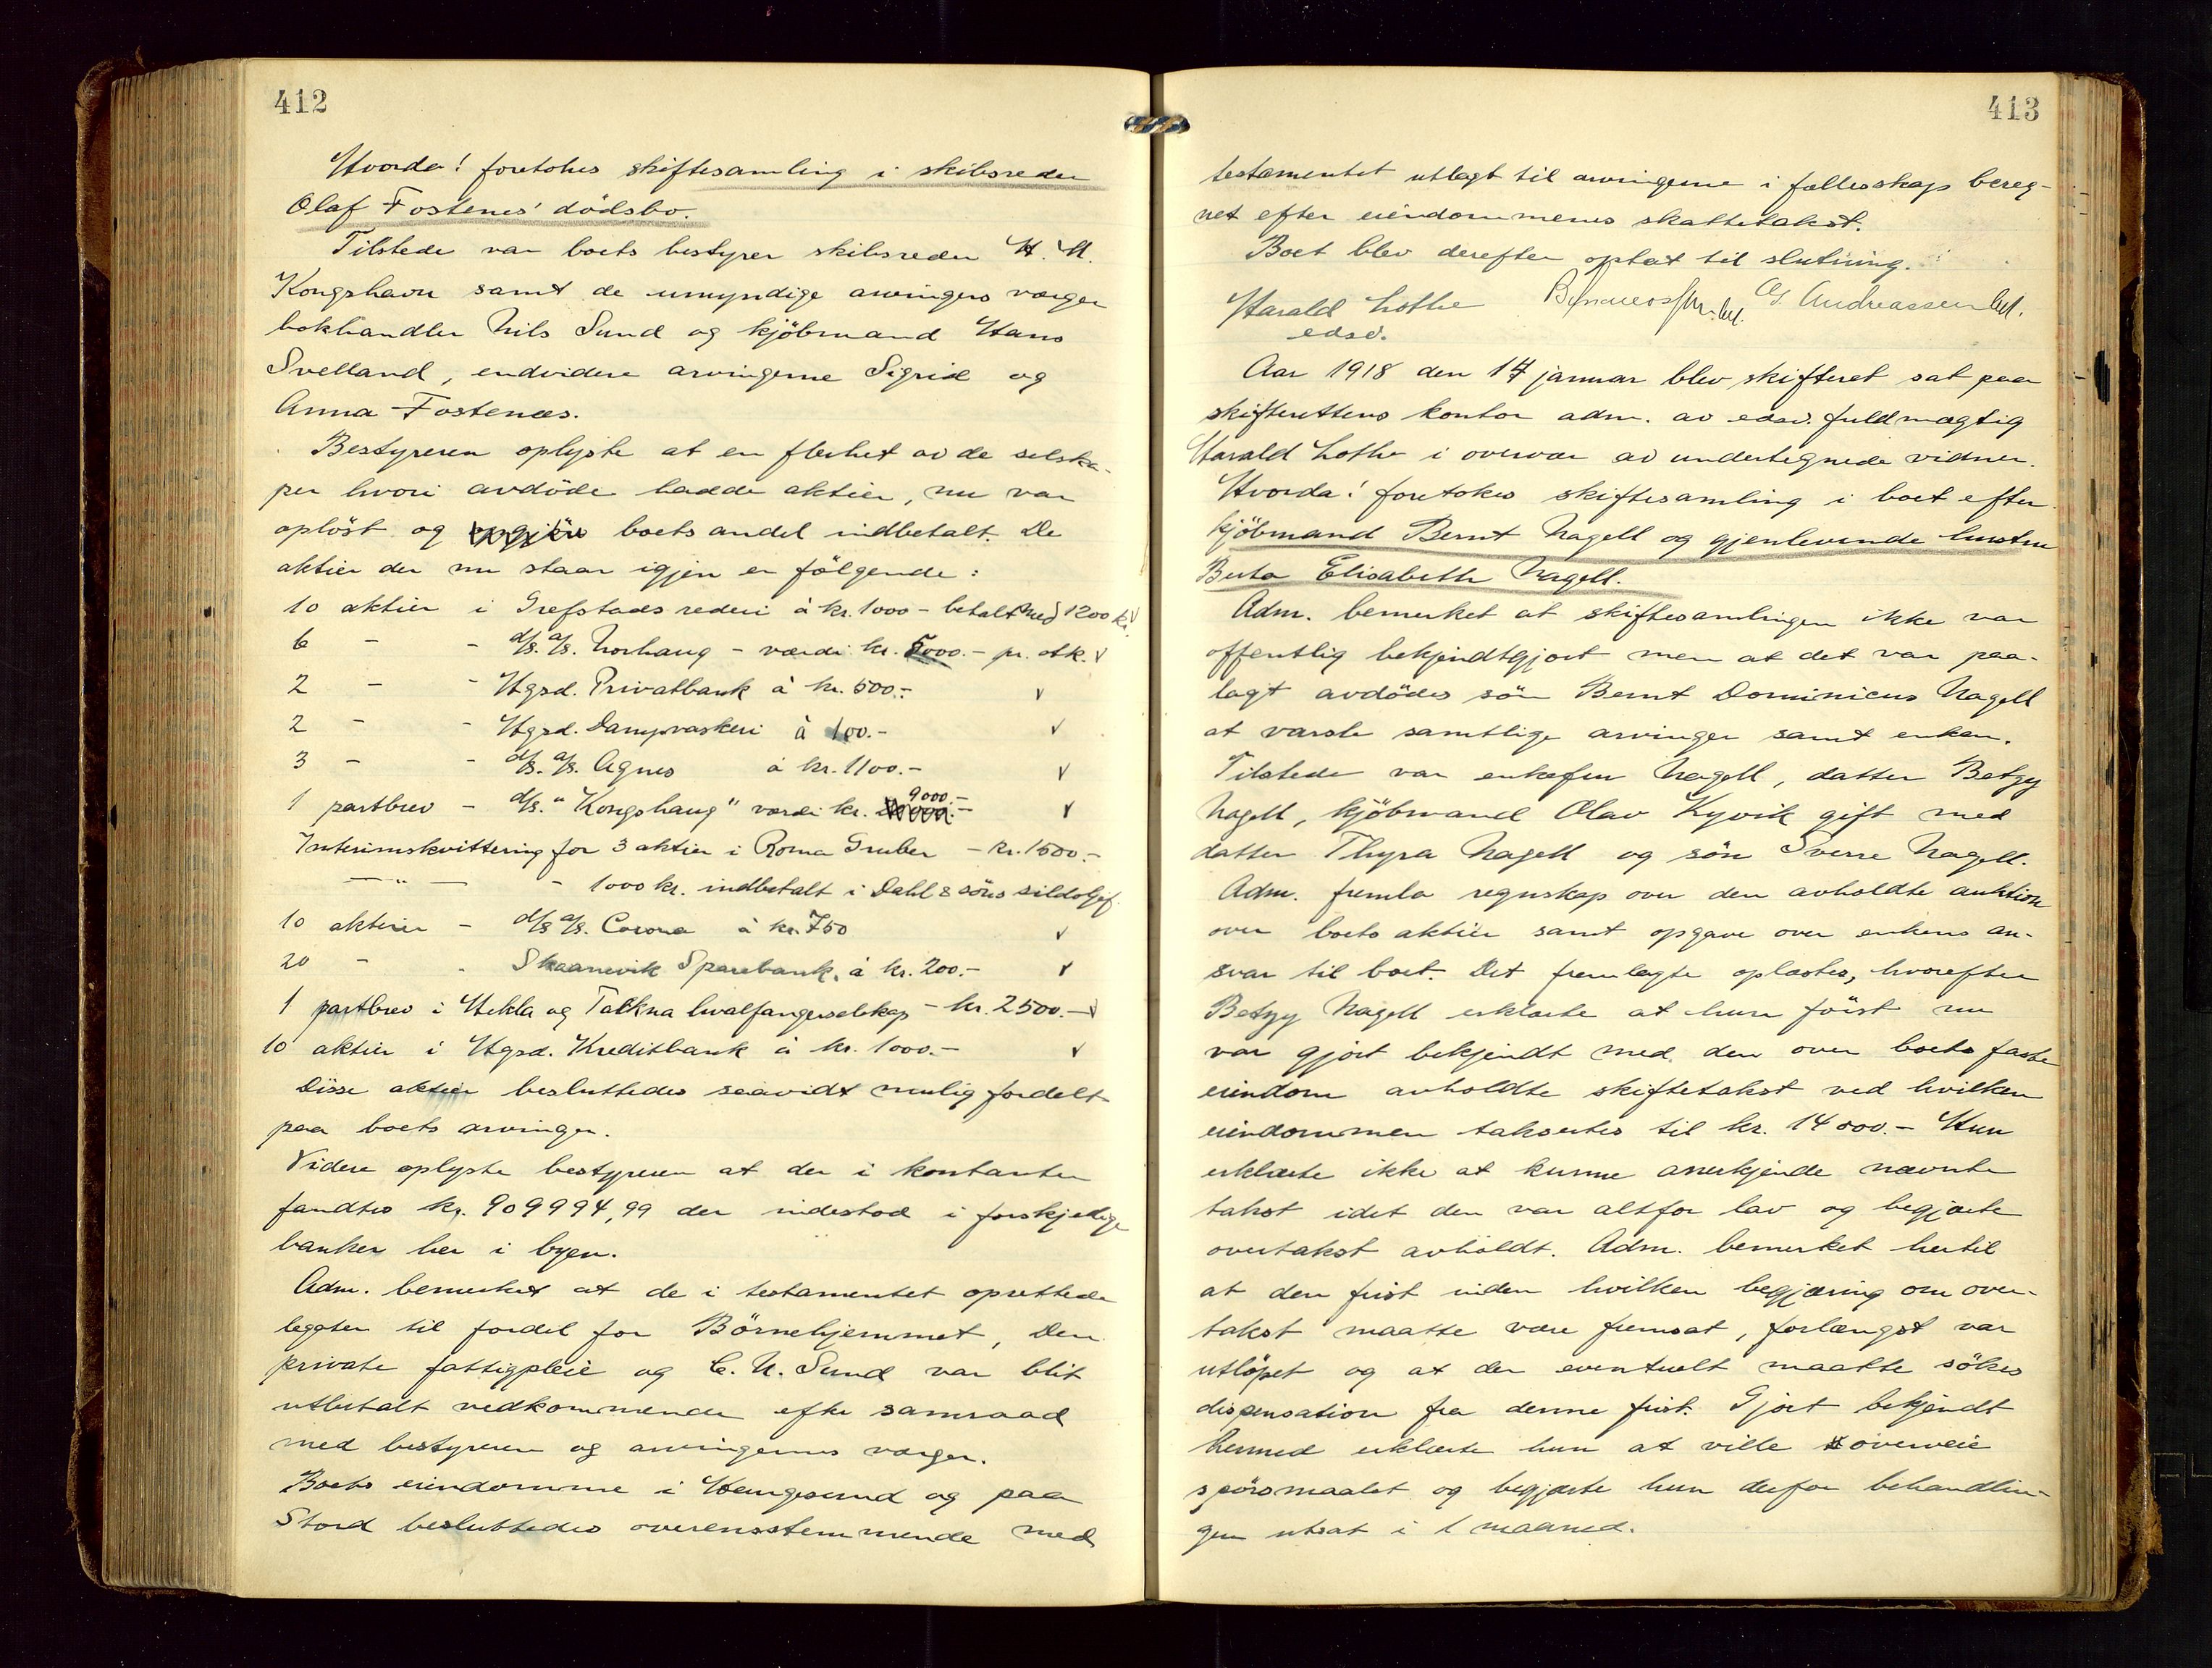 412
Hvorda! foretokes skiftesamling i skibsreder
Olaf Fostenes' dödsbo.
Tilstede var boets bestyrer skibsreder H. M.
Kongshavn samt de umyndige arvingers verger
bokhandler Nils Sund og kjöbmand Hans
Svelland, endvidere arvingerne Sigrid og
Anna Fostenæs.
Bestyreren oplyste at en flerhet av de selska-
per hvori avdöde hadde aktier, nu var
oplöst og boets andel indbetalt. De
aktier der nu staar igjen er fölgende:
10 aktier i Grefstads rederi à kr. 1000 - betalt med 1200 kr. ✓
6 - - d/s. a/s. Norhaug - værdi kr. 5000.- pr. stk. ✓
2 - - Hgsd. Privatbank à kr. 500.- ✓
2 - - Hgsd. Dampvaskeri à 100.- ✓
3 - - d/s. a/s. Agnes à kr. 1100.- ✓
1 partbrev - d/s. "Kongshaug" værdi kr. 9000.- ✓
Interimskvittering for 3 aktier i Roma Gruber - kr. 1500.-
—"— - 1000 kr. indbetalt i Dahl & söns sildoljef.
10 aktier - d/s a/s. Corona à kr. 750 ✓
20 - - Skaanevik Sparebank, à kr. 200.- ✓
1 partbrev i Hekla og Talkna hvalfangerselskap - kr. 2500.- ✓
10 aktier i Hgsd. Kreditbank à kr. 1000.- ✓
Disse aktier besluttedes saavidt mulig fordelt
paa boets arvinger.
Videre oplyste bestyreren at der i kontanter
fandtes kr. 909994,99 der indestod i forskjellige
banker her i byen.
Adm. bemerket at de i testamentet oprettede
legater til fordel for Börnehjemmet, Den
private fattigpleie og C. N. Sund var blit
utbetalt vedkommende efter samraad
med bestyreren og arvingernes verger.
Boets eiendomme i Haugesund og paa
Stord besluttedes overensstemmende med
413
testamentet utlagt til arvingerne i fællesskap bereg-
net efter eiendommenes skattetakst.
Boet blev derefter optat til slutning.
Harald Lothe G. Andreassen
edsv.
Aar 1918 den 14 januar blev skifteret sat paa
skifterettens kontor adm. av edsv. fuldmægtig
Harald Lothe i overvær av undertegnede vidner.
Hvorda! foretokes skiftesamling i boet efter
kjöbmand Bernt Nagell og gjenlevende hustru
Berta Elisabeth Nagell.
Adm. bemerket at skiftesamlingen ikke var
offentlig bekjendtgjort men at det var paa-
lagt avdödes sön Bernt Dominicus Nagell
at varsle samtlige arvinger samt enken.
Tilstede var enkefru Nagell, datter Betzy
Nagell, kjöbmand Olav Kyvik gift med
datter Thyra Nagell og sön Sverre Nagell.
Adm. fremla regnskap over den avholdte auktion
over boets aktier samt opgave over enkens an-
svar til boet. Det fremlagte oplæstes, hvorefter
Betzy Nagell erklærte at hun först nu
var gjort bekjendt med den over boets faste
eiendom avholdte skiftetakst ved hvilken
eiendommen taksertes til kr. 14000.- Hun
erklærte ikke at kunne anerkjende nævnte
takst idet den var altfor lav og begjærte
overtakst avholdt. Adm. bemerket hertil
at den frist inden hvilken begjæring om over-
takst maatte være fremsat, forlængst var
utlöpet og at der eventuelt maatte sökes
dispensation fra denne frist. Gjort bekjendt
hermed erklærte hun at ville overveie
spörsmaalet og begjærte hun derfor behandlin-
gen utsat i 1 maaned.